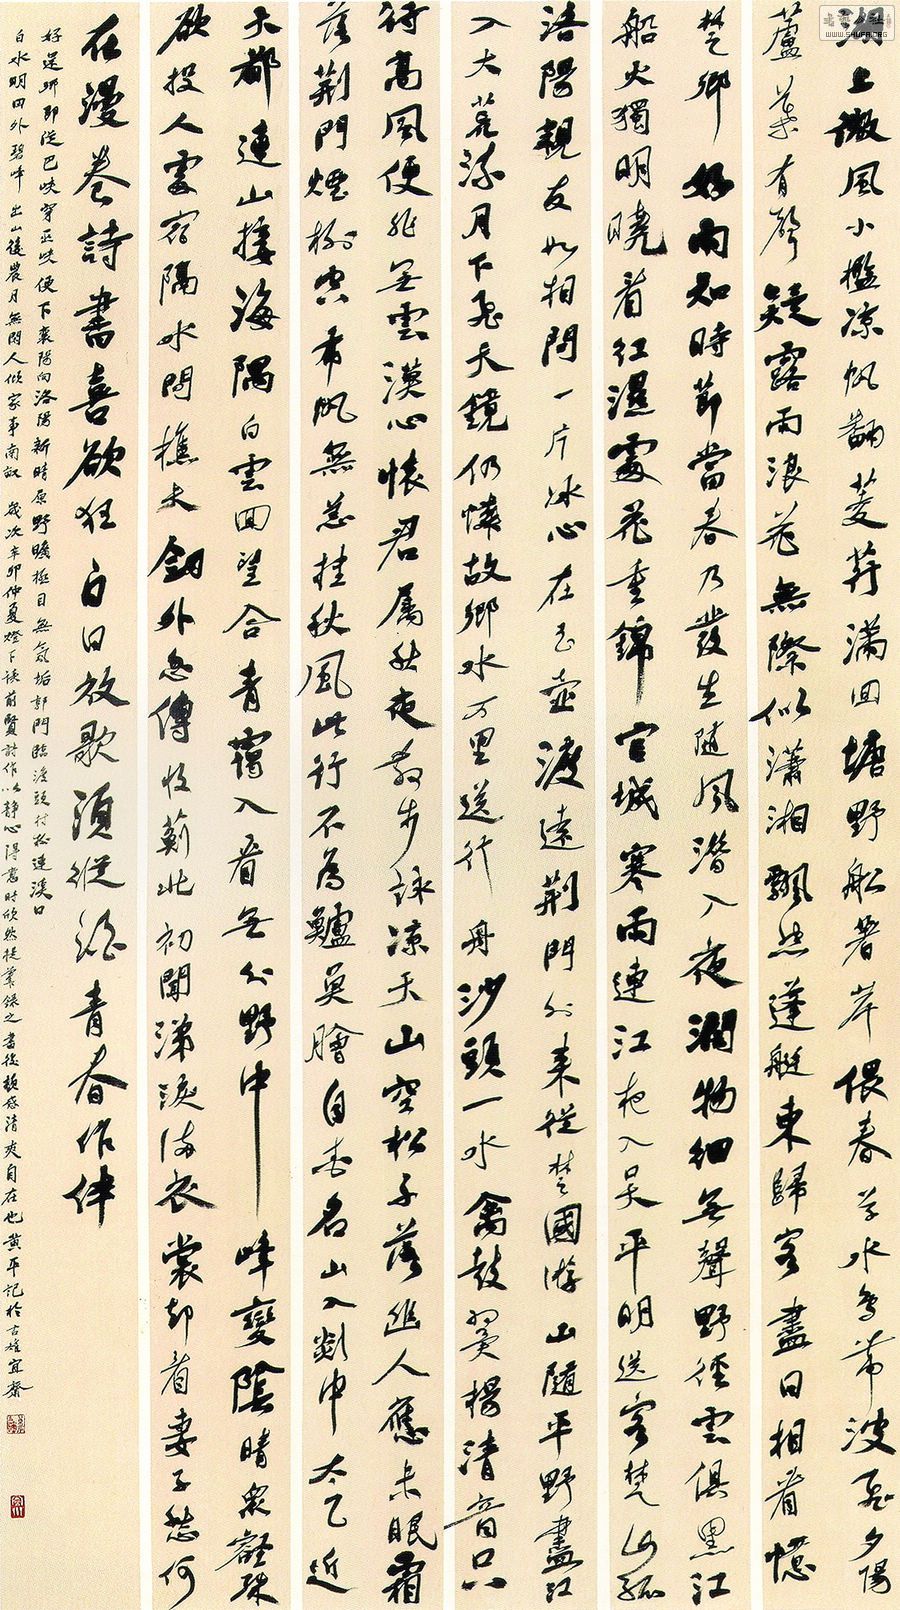 湖上微風小檻涼帆翻菱荇滿回塘野船著岸偎春草水鳥帶波飛夕陽
蘆葉有聲疑露雨浪花無際似瀟湘飄然蓬艇東歸客盡日相看憶
楚鄉好雨知時節當春乃發生隨風潛入夜潤物細無聲野徑雲俱黑江
船火獨明曉看紅濕處花重錦官城寒雨連江夜入吳平明送客楚山孤
洛陽親友如相問一片冰心在玉壺渡遠荊門外來從楚國游山隨平野盡江
入大荒流月下飛天鏡仍憐故鄉水万里送行舟沙頭一水禽鼓翼揚清音只
待高風便非無雲漢心懷君屬秋夜散步詠涼天山空松子落幽人應未眠霜
落荊門煙樹空布帆無恙挂秋風此行不為鱸魚膾自愛名山入剡中太乙近
天都連山接海隅白雲回望合青靄入看無分野中峰變陰晴眾壑殊
欲投人處宿隔水問樵夫劍外忽傳收薊北初聞涕淚滿衣裳卻看妻子愁何
在漫卷詩書喜欲狂白日放歌須縱酒青春作伴
好還鄉即從巴峽穿巫峽便下襄陽向洛陽新晴原野曠極目無氛垢郭門臨渡頭村樹連溪口
白水明田外碧峰出山後農月無閒人傾家事南畝 歲次辛卯仲夏燈下讀前賢詩作以靜心得意時欣然提筆錄之書後頓感清爽自在也黃平記於古雉宜齋
WWW.SHUFA.ORG